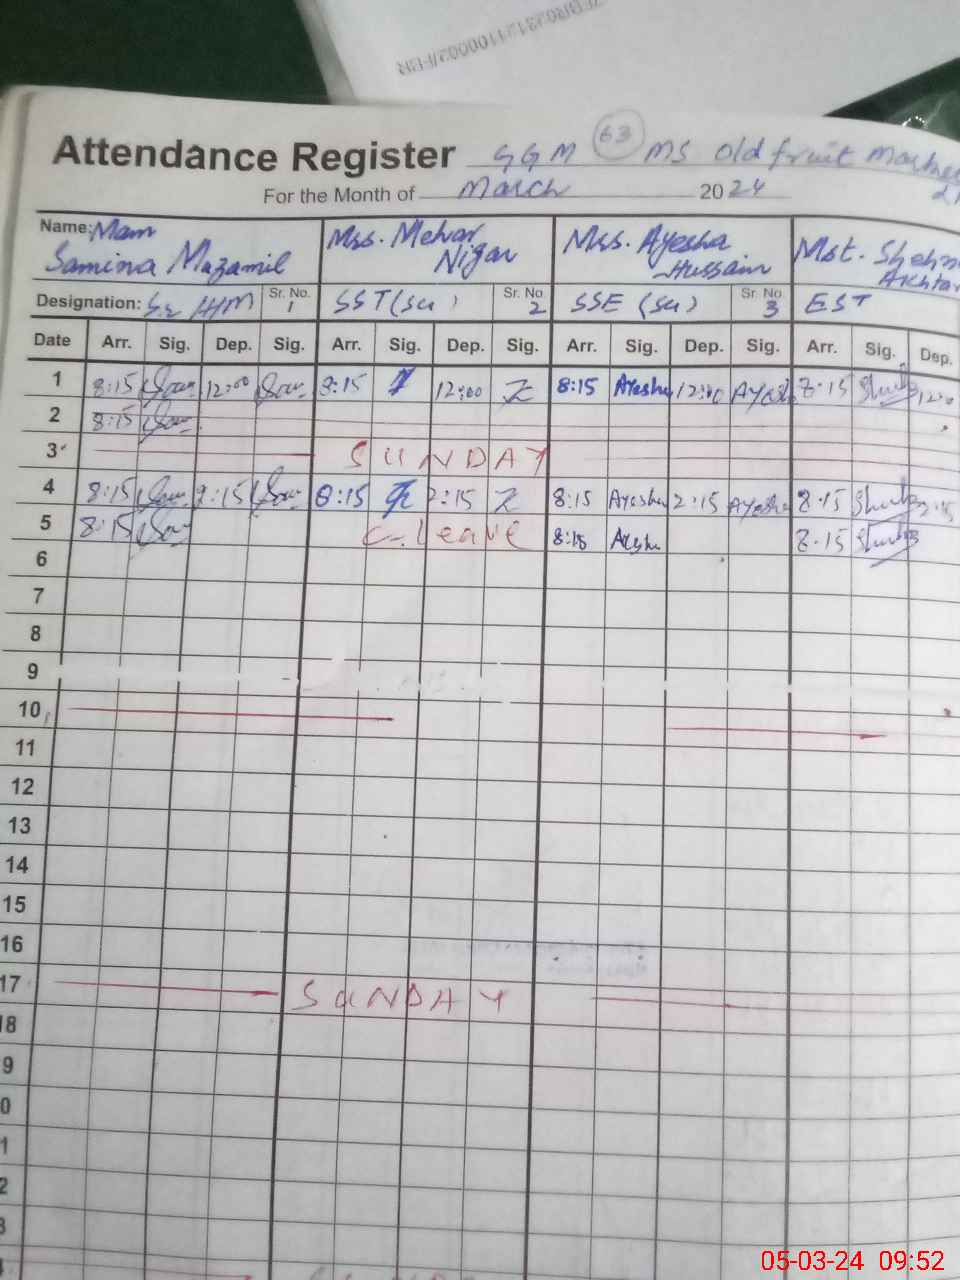 Attendance Register GGM 63 MS Old fruit
For the Month of March 2024
Name: Mam Samina Mazamil Mss. Mehar Nigar Mss. Ayesha Hussain Mst. Akhtar
Designation: Sr. No. 1 SST (Sci) Sr. No 2 SSE (Sci) Sr. No 3 EST
Date Arr. Sig. Dep. Sig. Arr. Sig. Dep. Sig. Arr. Sig. Dep. Sig. Arr. Sig. Dep.
1 8:15 12:00 8:15 12:00 8:15 Ayesha 12:00 8:15 12:0
2 8:15
3 SUNDAY
4 8:15 2:15 8:15 2:15 8:15 Ayesha 2:15 Ayesha 8:15 2:15
5 8:15 C.leave 8:15 8:15
6
7
8
9
10
11
12
13
14
15
16
17 SUNDAY
18
9
0
1
2
3
05-03-24 09:52